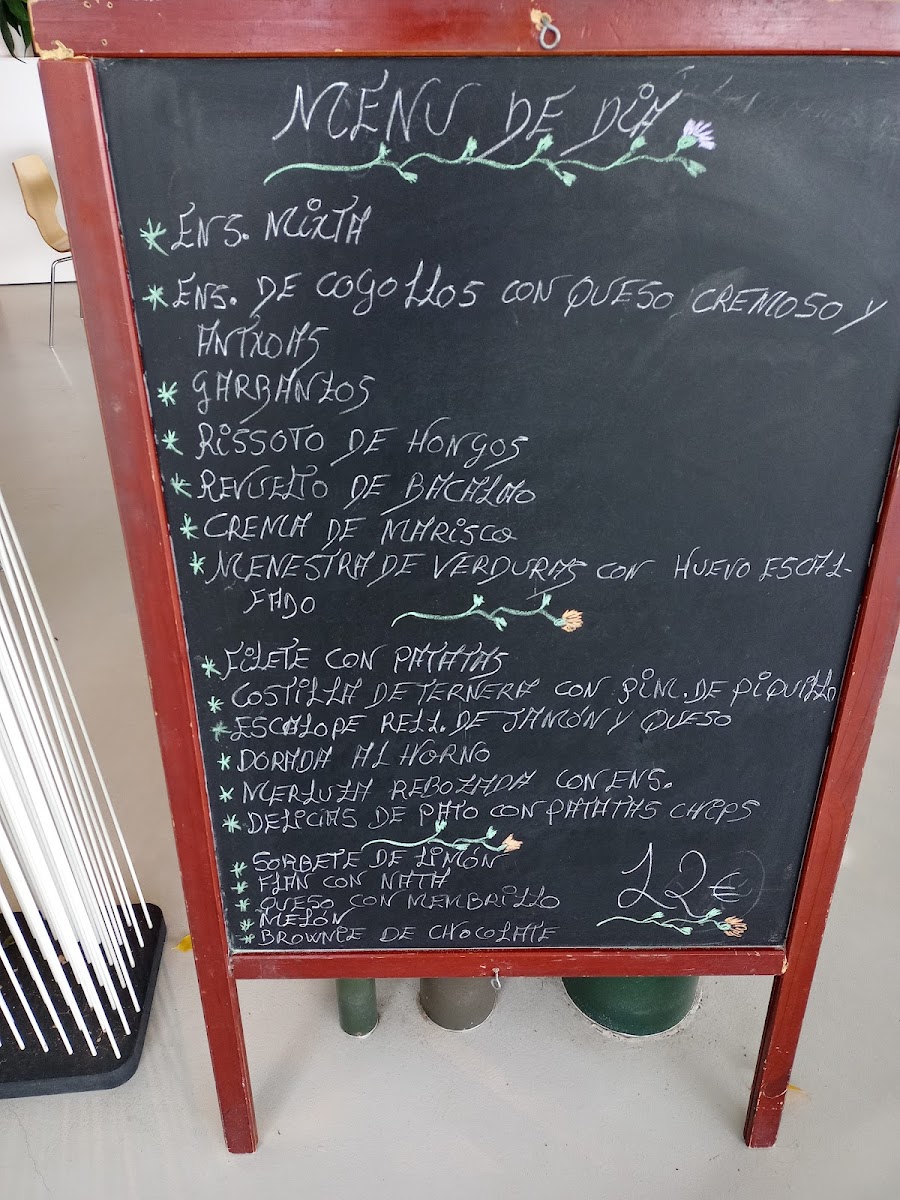 MENU DE DíA
* ENS. MIXTA
* ENS. DE COGOLLOS CON QUESO CREMOSO Y
ANTXOAS
* GARBANZOS
* RISSOTO DE HONGOS
* REVUELTO DE BACALAO
* CREMA DE MARISCO
* MENESTRA DE VERDURAS CON HUEVO ESCAL-
FADO
* FILETE CON PATATAS
* COSTILLA DE TERNERA CON PIM. DE PIQUILLO
* ESCALOPE RELL. DE JAMÓN Y QUESO
* DORADA AL HORNO
* MERLUZA REBOZADA CON ENS.
* DELICIAS DE PATO CON PATATAS CHIPS
* SORBETE DE LIMÓN
* FLAN CON NATA
* QUESO CON MEMBRILLO
* MELÓN
* BROWNIE DE CHOCOLATE
12€